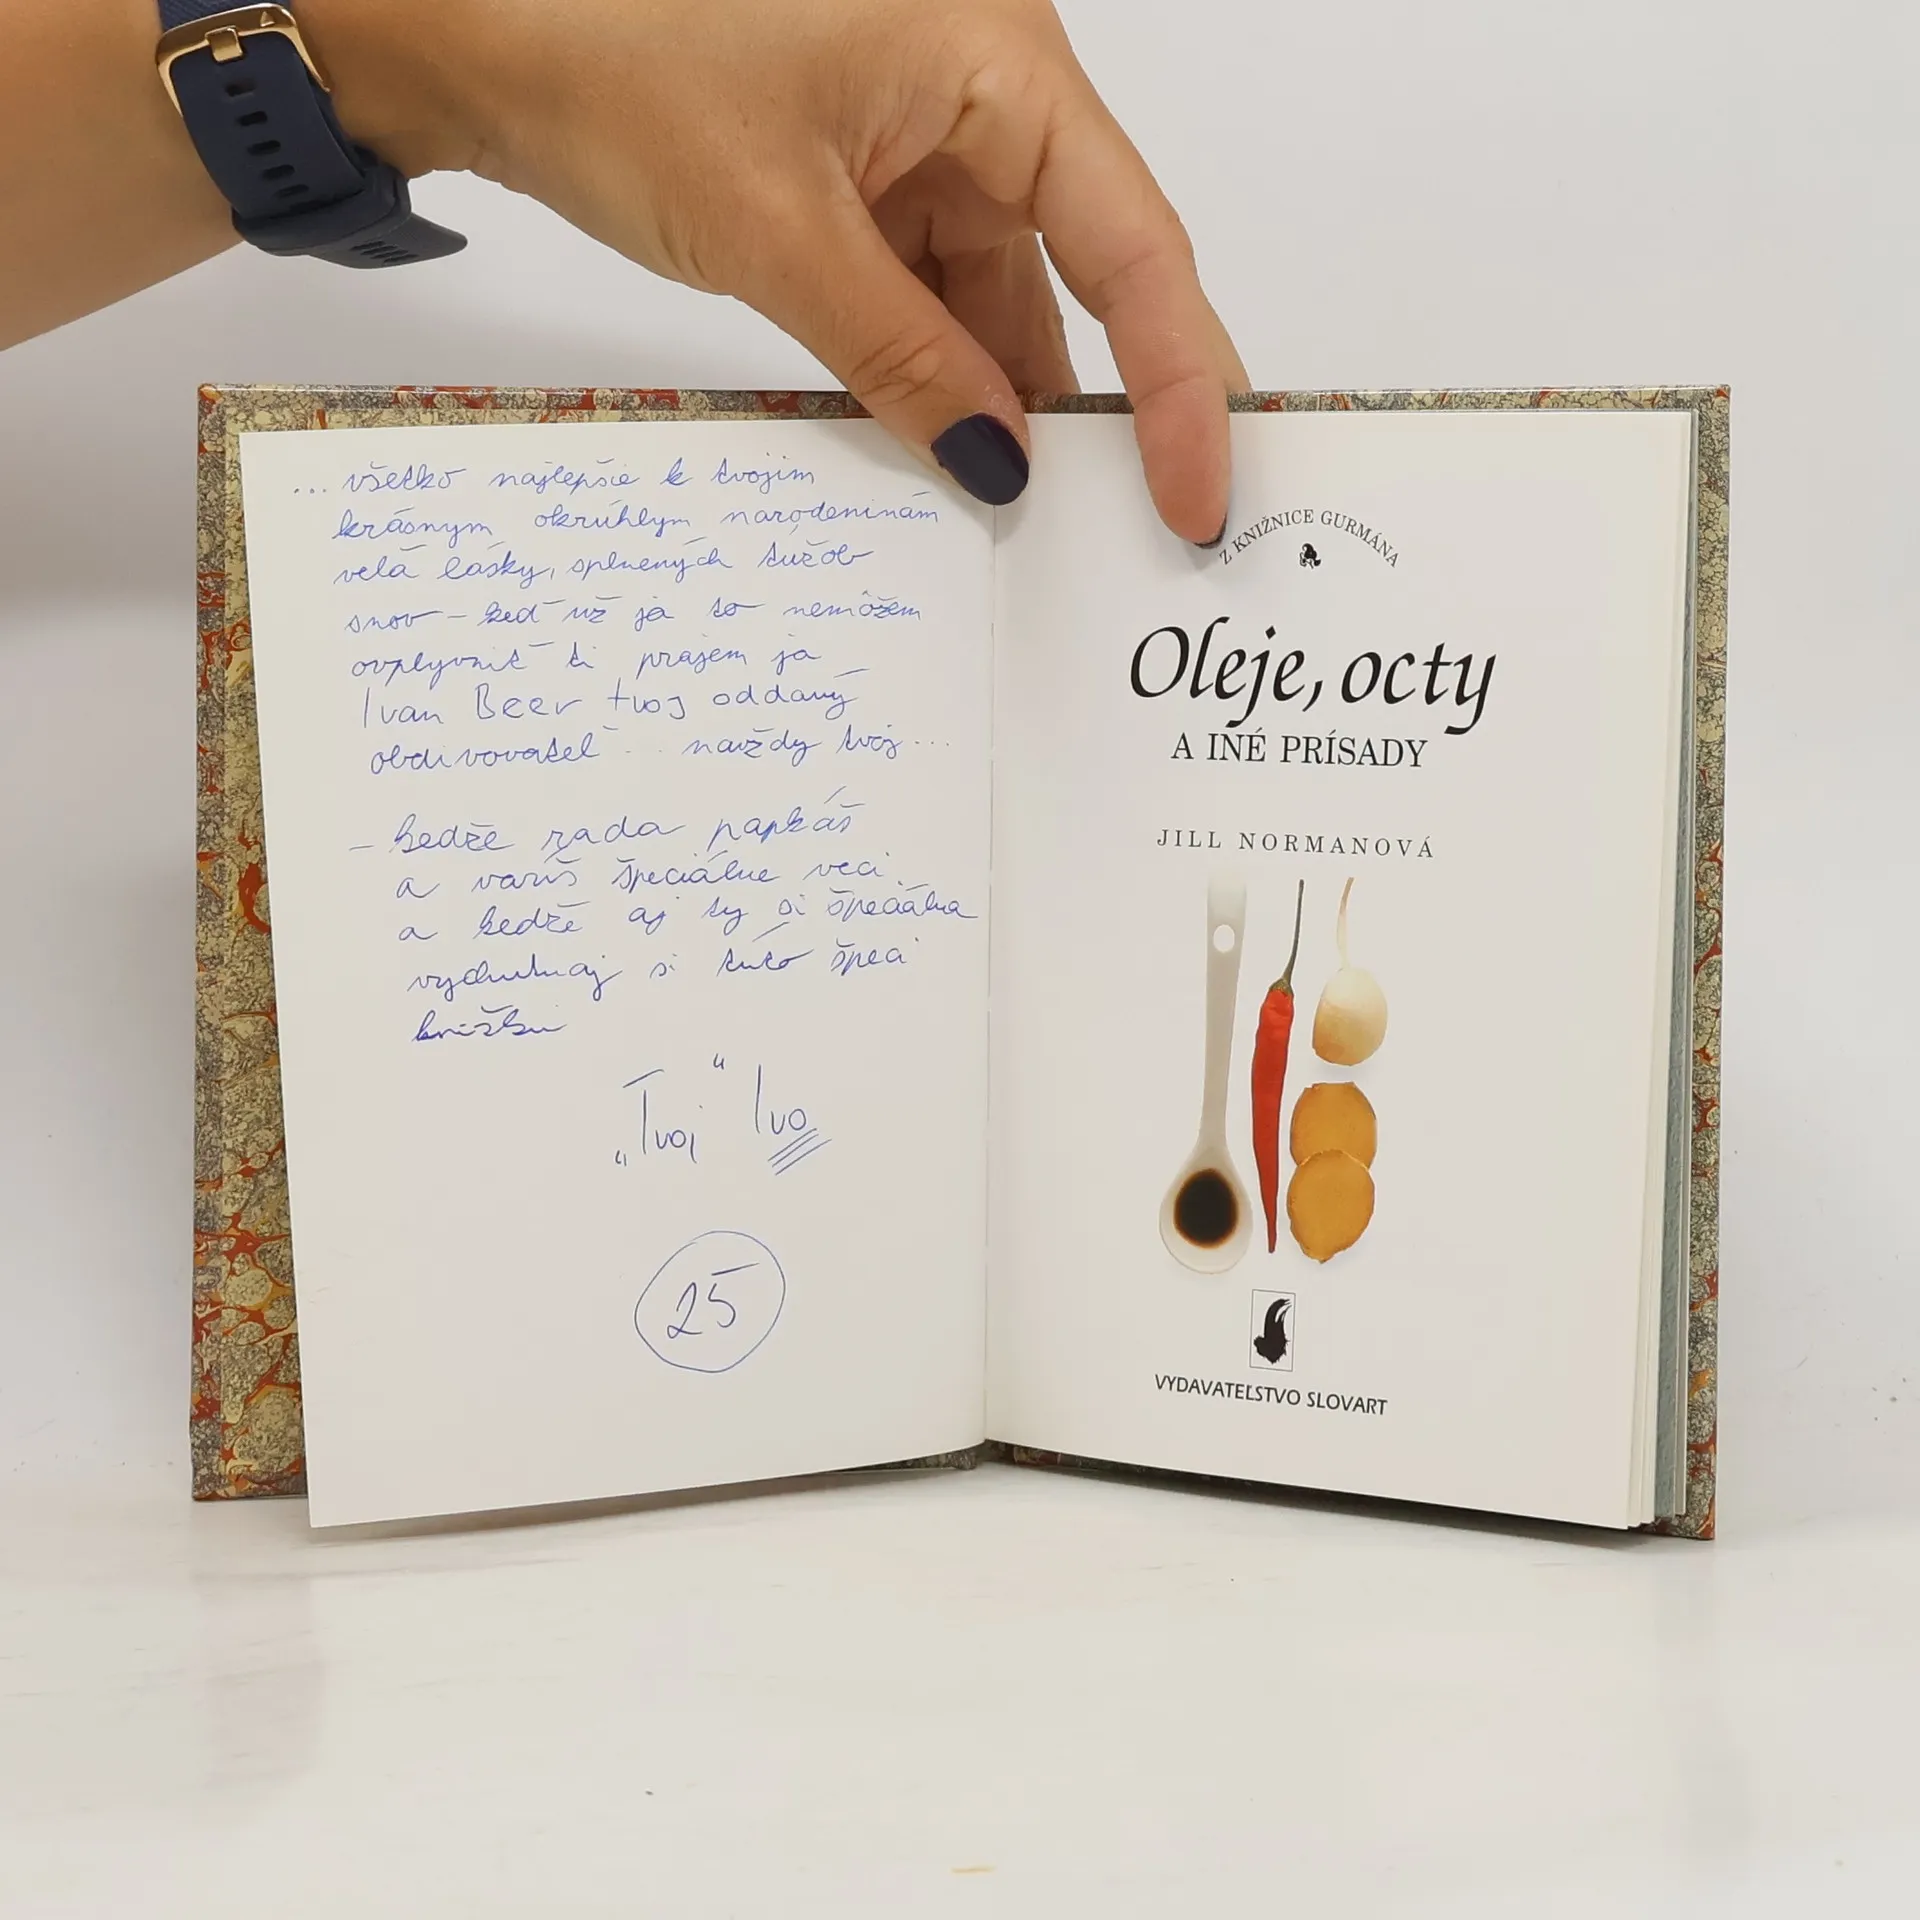 ... všetko najlepšie k tvojim
krásnym okrúhlym narodeninám
veľa lásky, splnených túžob
snov – keď už ja to nemôžem
ovplyvniť ti prajem ja
Ivan Beer tvoj oddaný
obdivovateľ ... navždy tvoj ...
– kedže rada papkáš
a varíš špeciálne veci
a kedže aj ty si špeciálna
vychutnaj si túto špeci
knižku
„Tvoj" Ivo
25
Z KNIŽNICE GURMÁNA
Oleje, octy
A INÉ PRÍSADY
JILL NORMANOVÁ
VYDAVATEĽSTVO SLOVART